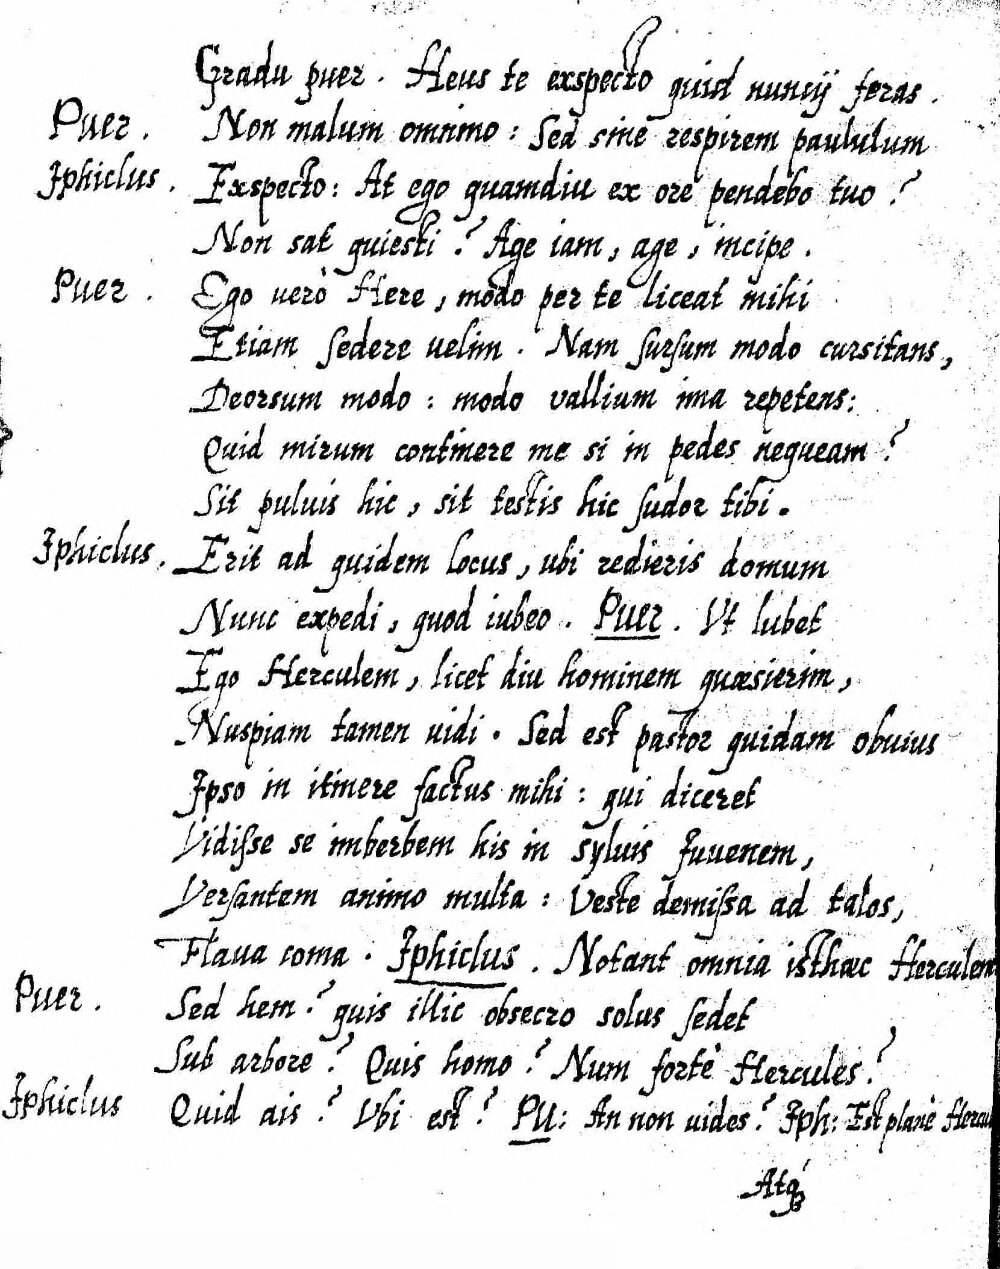 Gradu puer. Heus te exspecto quid nuncij feras.
Puer. Non malum omnino: Sed sine respirem paululum
Jphiclus. Exspecto: At ego quamdiu ex ore pendebo tuo?
Non sat quiesti? Age iam, age, incipe.
Puer. Ego uerò Here, modo per te liceat mihi
Etiam sedere uelim. Nam surſum modo cursitans,
Deorsum modo: modo vallium ima repetens:
Quid mirum continere me si in pedes nequeam?
Sit puluis hic, sit testis hic ſudor tibi.
Jphiclus. Erit ad quidem locus, ubi redieris domum
Nunc expedi, quod iubeo. Puer. Vt lubet
Ego Herculem, licet diu hominem quæsierim,
Nuspiam tamen uidi. Sed est pastor quidam obuius
Jpso in itinere factus mihi: qui diceret
Vidiſse se imberbem his in syluis Juuenem,
Verſantem animo multa: Veste demiſsa ad talos,
Flaua coma. Jphiclus. Notant omnia isthæc Herculem
Puer. Sed hem? quis illic obsecro solus ſedet
Sub arbore? Quis homo? Num fortè Hercules?
Jphiclus Quid ais? Vbi est? PU: An non uides? Jph: Est planè Hercu
Atq́ꝫ